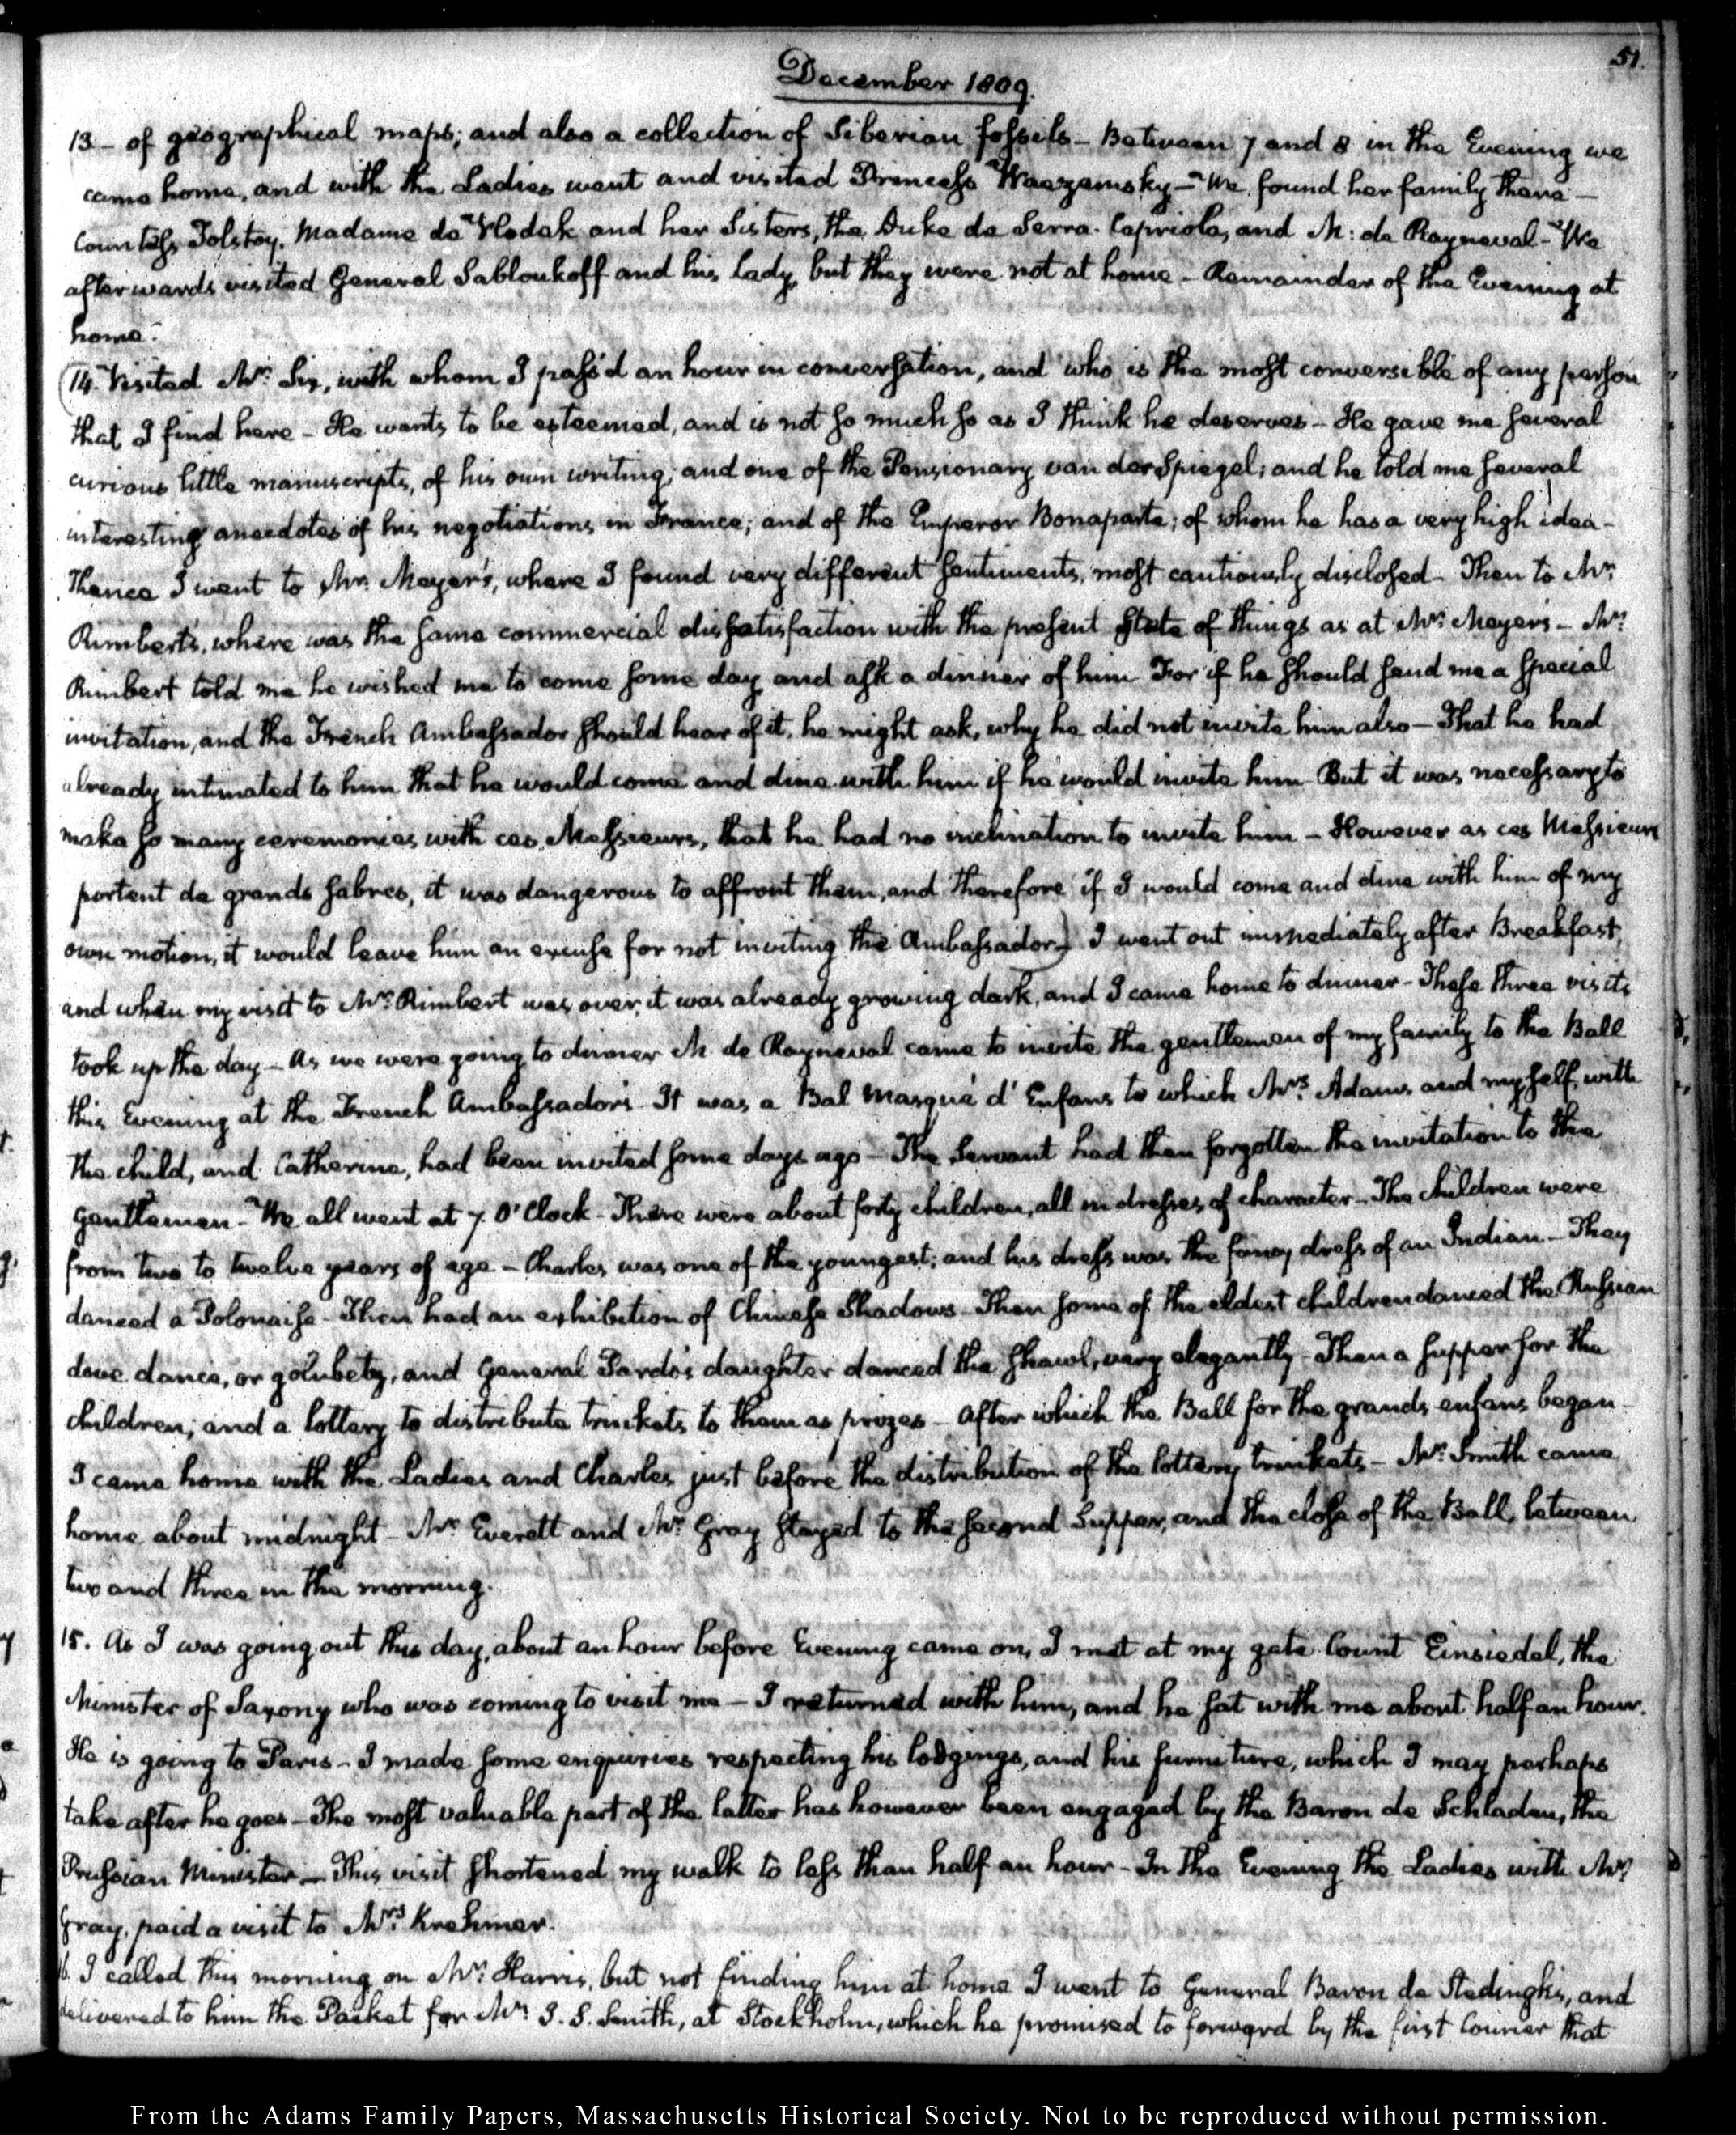 51.
December 1809.
13 – of geographical maps; and also a collection of Siberian fossils – Between 7 and 8 in the Evening we
came home, and with the Ladies went and visited Princess Waezemsky – We found her family there –
Countess Tolstoy, Madame de Vlodek and her Sisters, the Duke de Serra-Capriola, and M: de Rayneval – We
afterwards visited General Sabloukoff and his lady, but they were not at home – Remainder of the Evening at
home.
14. Visited Mr: Six, with whom I pass'd an hour in conversation, and who is the most conversible of any person
that I find here – He wants to be esteemed, and is not so much so as I think he deserves – He gave me several
curious little manuscripts, of his own writing; and one of the Pensionary van der Spiegel; and he told me several
interesting anecdotes of his negotiations in France; and of the Emperor Bonaparte; of whom he has a very high idea –
Thence I went to Mr. Meyer's, where I found very different sentiments, most cautiously disclosed – Then to Mr:
Rimbert's, where was the same commercial dissatisfaction with the present state of things as at Mr: Meyer's – Mr:
Rimbert told me he wished me to come some day and ask a dinner of him For if he should send me a special
invitation, and the French Ambassador should hear of it, he might ask, why he did not invite him also – That he had
already intimated to him that he would come and dine with him if he would invite him – But it was necessary to
make so many ceremonies with ces Messieurs, that he had no inclination to invite him – However as ces Messieurs
portent de grands sabres, it was dangerous to affront them, and therefore if I would come and dine with him of my
own motion, it would leave him an excuse for not inviting the Ambassador) I went out immediately after Breakfast,
and when my visit to Mr: Rimbert was over, it was already growing dark, and I came home to dinner – These three visits
took up the day – As we were going to dinner M. de Rayneval came to invite the gentlemen of my family to the Ball
this Evening at the French Ambassador's – It was a Bal masqué d'Enfans to which Mrs: Adams and myself, with
the child, and Catherine, had been invited some days ago – The Servant had then forgotten the invitation to the
Gentlemen – We all went at 7. O'Clock – There were about forty children, all in dresses of character – The children were
from two to twelve years of age – Charles was one of the youngest; and his dress was the fancy dress of an Indian – They
danced a Polonaise – Then had an exhibition of Chinese Shadows – Then some of the eldest children danced the Russian
dove dance, or golubetz, and General Pardo's daughter danced the shawl, very elegantly – Then a supper for the
children; and a lottery to distribute trinkets to them as prizes – After which the Ball for the grands enfans began –
I came home with the Ladies and Charles just before the distribution of the lottery trinkets – Mr: Smith came
home about midnight – Mr: Everett and Mr: Gray stayed to the second Supper, and the close of the Ball, between
two and three in the morning.
15. As I was going out this day, about an hour before Evening came on, I met at my gate Count Einsiedel, the
Minister of Saxony who was coming to visit me – I returned with him, and he sat with me about half an hour.
He is going to Paris – I made some enquiries respecting his lodgings, and his furniture, which I may perhaps
take after he goes – The most valuable part of the latter has however been engaged by the Baron de Schladen, the
Prussian Minister – This visit shortened my walk to less than half an hour – In the Evening the Ladies with Mr:
Gray, paid a visit to Mrs: Krehmer.
16. I called this morning on Mr: Harris, but not finding him at home I went to General Baron de Stedingk's, and
delivered to him the Packet for Mr: J. S. Smith, at Stockholm, which he promised to forward by the first Courier that
From the Adams Family Papers, Massachusetts Historical Society. Not to be reproduced without permission.